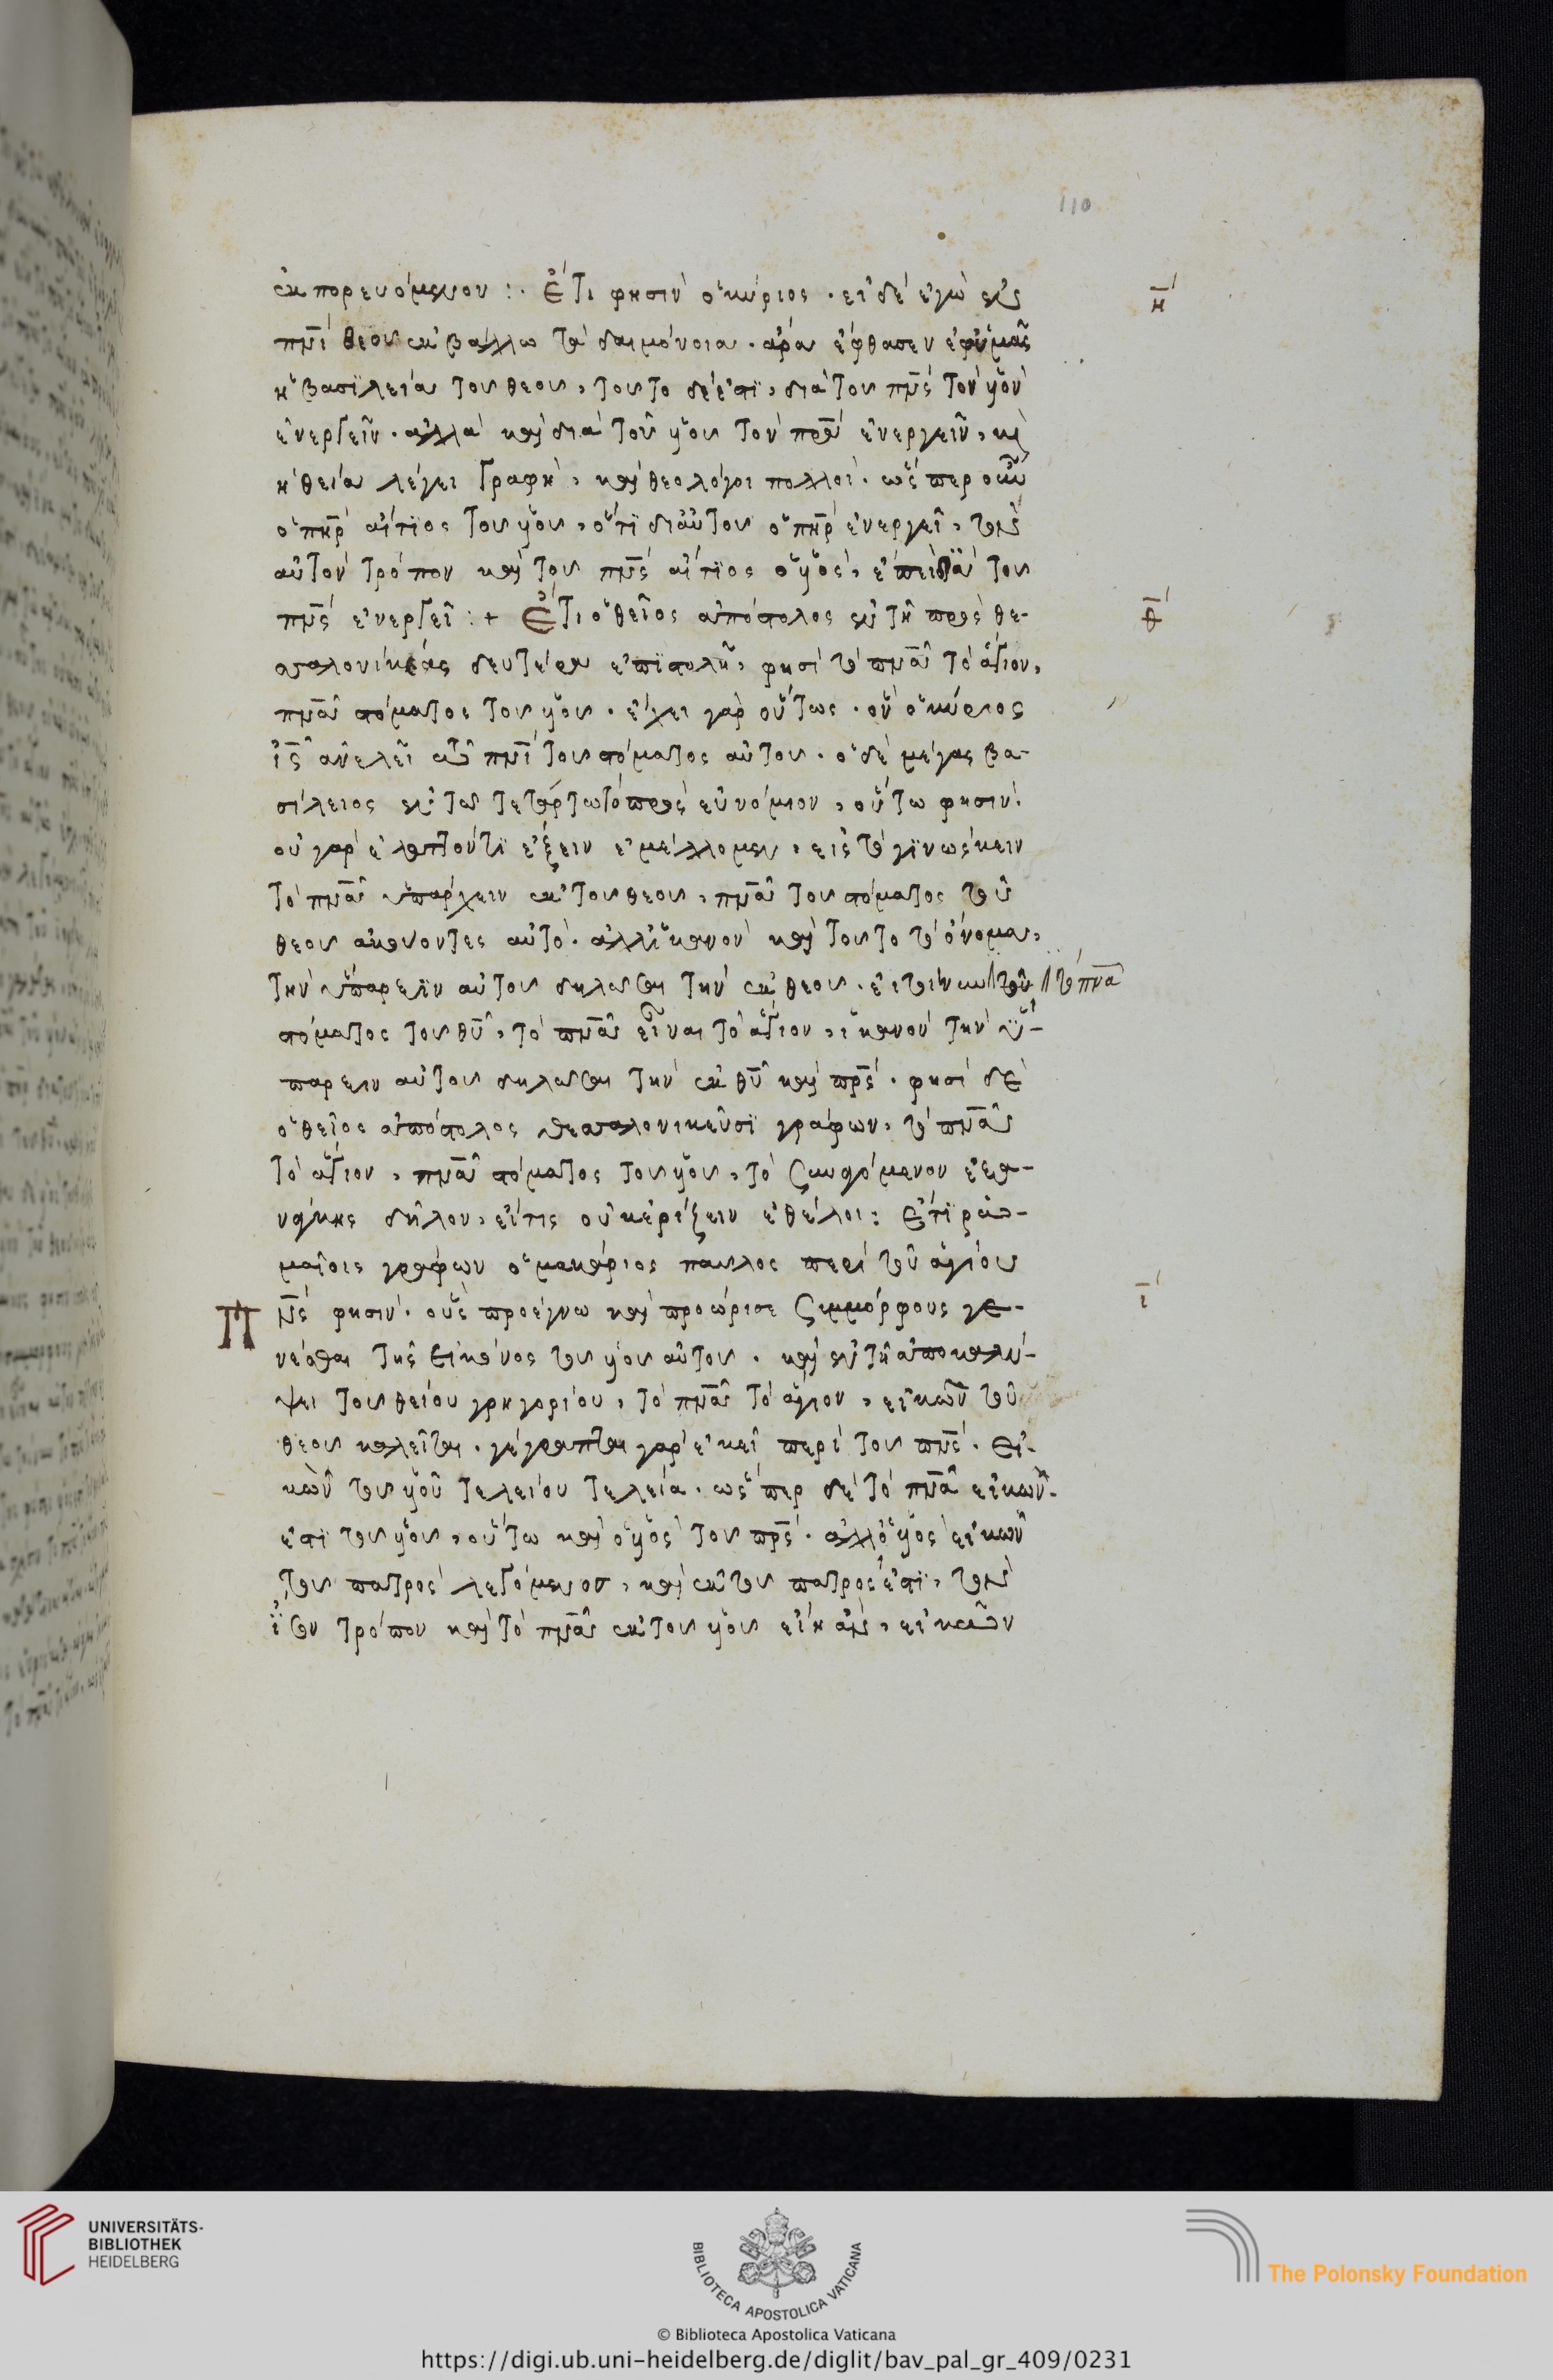 110
ἐκπορευόμενον :· Ἔτι φησὶν ὁ κύριος · εἰ δὲ ἐγὼ ἐν
πν̅ι θεοῦ ἐκβάλλω τὰ δαιμόνοια · ἄρα ἔφθασεν ἐφ' ὑμᾶς
ἡ βασϊλεία τοῦ θεοῦ, τοῦτο δέ ἐστϊ, διὰ τοῦ πν̅ς τὸν υἱὸν
ἐνεργεῖν · ἀλλὰ καὶ διὰ τοῦ υἱοῦ τὸν πρ̅α ἐνεργεῖν, καὶ
ἡ θεία λέγει γραφὴ, καὶ θεολόγοι πολλοὶ · ὥσπερ οὖν
ὁ πη̅ρ αἴτϊος τοῦ υἱοῦ, ὅτϊ δι' αὐτοῦ ὁ πη̅ρ ἐνεργεῖ, τὸν
αὐτὸν τρόπον καὶ τοῦ πν̅ς αἴτϊος ὁ υἱὸς, ἐπειδὰν τοῦ
πν̅ς ἐνεργεῖ :+ Ἔτι ὁ θεῖος ἀπόστολος ἐν τῇ πρὸς θε-
σσαλονίκέας δευτέρα ἐπϊστολῆ, φησὶ τὸ πν̅α τὸ ἅγιον,
πν̅α στόματος τοῦ υἱοῦ · ἔχει γὰρ οὕτως · ὃν ὁ κύριος
ι̅ς ἀνελεῖ ἐν πν̅ι τοῦ στόματος αὐτοῦ · ὁ δὲ μέγας βα-
σίλειος ἐν τῶ τετάρτω τὸ πρὸς εὐνόμιον, οὕτω φησίν·
οὐ γὰρ ἔλαττόν τϊ ἕξειν ἐμέλλομεν, εἰς τὸ γϊνώσκειν
τὸ πν̅α ὑπάρχειν ἐκ τοῦ θεοῦ, πν̅α τοῦ στόματος τοῦ
θεοῦ ἀκούοντες αὐτὸ · ἀλλ' ἱκανὸν καὶ τοῦτο τὸ ὄνομα,
τὴν ὕπαρξϊν αὐτοῦ δηλῶσαι τὴν ἐκ θεοῦ · εἰ τοίνυν τοῦ // τὸ πν̅α
στόματος τοῦ θυ̅, τὸ πν̅α εἶναι τὸ ἅγιον, ἱκανὸν τὴν ὕ-
παρξιν αὐτοῦ δηλῶσαι τὴν ἐκ θυ̅ καὶ πρ̅ς · φησὶ δὲ
ὁ θεῖος ἀπόστολος θεσσαλονικεῦσϊ γράφων, τὸ πν̅α
τὸ ἅγιον, πν̅α στόματος τοῦ υἱοῦ, τὸ
δῆλον, εἴτις οὐκ ἐρίζειν ἐθέλοι : Ἔτϊ ρω-
μαίοις γράφων ὁ μακάριος παυλος περὶ τοῦ ἁγίου
Πν̅ς φησίν · οὓς προέγνω καὶ προώρισε συμμόρφους γε-
νέσθαι τῆς εἰκόνος τοῦ υἱοῦ αὐτοῦ · καὶ ἐν τῆ ἀποκαλύ-
ψει τοῦ θείου γρηγορίου, τὸ πν̅α τὸ ἅγιον, εἰκὼν τοῦ
θεοῦ καλεῖται · γέγραπται γὰρ ἐκεῖ περὶ τοῦ πν̅ς · Εἰ-
κὼν τοῦ υἱοῦ τελείου τελεία · ὥσπερ δὲ τὸ πν̅α εἰκὼν
ἐστϊ τοῦ υἱοῦ, οὕτω καὶ ὁ υἱὸς τοῦ πρ̅ς · ἀλλ' ὁ υἱὸς εἰκὼν
τοῦ πατρὸς λεγόμενος, καὶ ἐκ τοῦ πατρὸς ἐστϊ, τὸν
ἴσον τρόπον καὶ τὸ πν̅α ἐκ τοῦ υἱοῦ εἴη ἂν, εἰκὼν
η̅
θ̅
ι̅
UNIVERSITÄTS-
BIBLIOTHEK
HEIDELBERG
BIBLIOTECA APOSTOLICA VATICANA
The Polonsky Foundation
© Biblioteca Apostolica Vaticana
https://digi.ub.uni-heidelberg.de/diglit/bav_pal_gr_409/0231